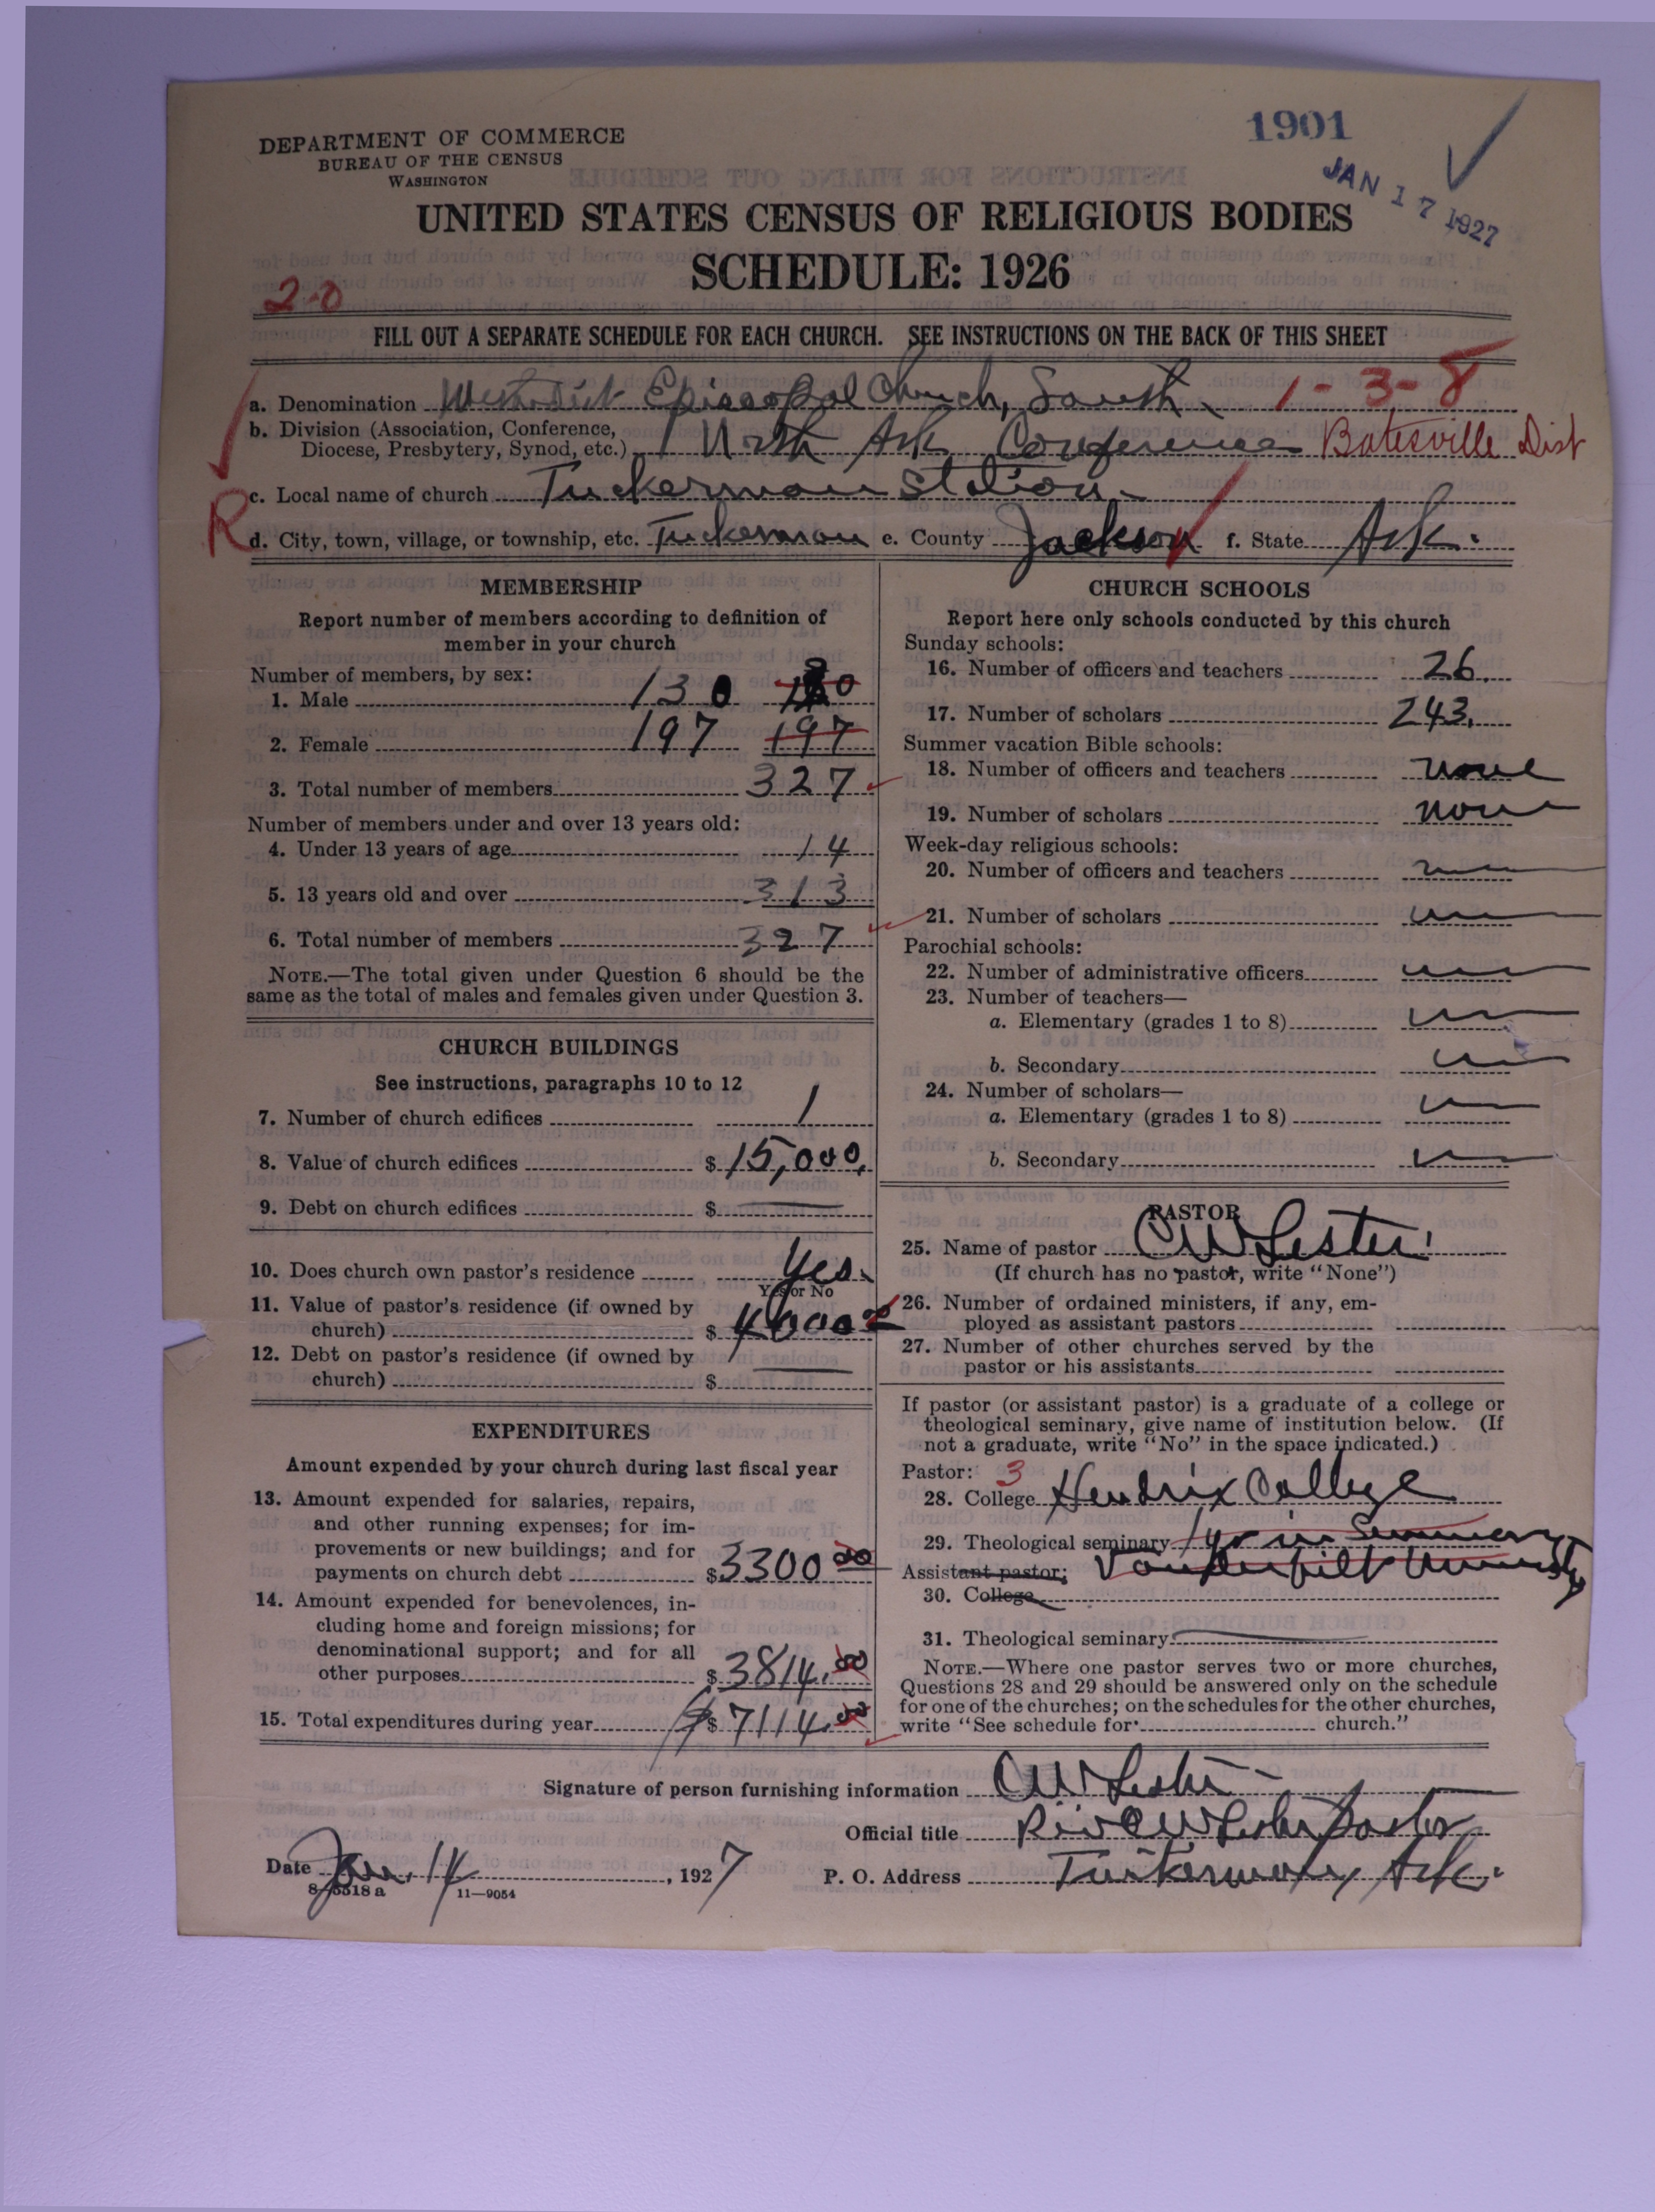 1901
DEPARTMENT OF COMMERCE
BUREAU OF THE CENSUS
WASHINGTON
JAN 17 1927
UNITED STATES CENSUS OF RELIGIOUS BODIES
SCHEDULE: 1926
2-0
FILL OUT A SEPARATE SCHEDULE FOR EACH CHURCH. SEE INSTRUCTIONS ON THE BACK OF THIS SHEET
a. Denomination Methodist Episcopal Church, South 1-3-8
b. Division (Association, Conference,
Diocese, Presbytery, Synod, etc.) North Ark Conference Batesville Dist
c. Local name of church Tuckerman Station
R
d. City, town, village, or township, etc. Tuckerman e. County Jackson f. State Ark.
MEMBERSHIP
Report number of members according to definition of
member in your church
Number of members, by sex:
1. Male 130
2. Female 197 197
3. Total number of members 327
Number of members under and over 13 years old:
4. Under 13 years of age 14
5. 13 years old and over 313
6. Total number of members 327
NOTE.—The total given under Question 6 should be the
same as the total of males and females given under Question 3.
CHURCH BUILDINGS
See instructions, paragraphs 10 to 12
7. Number of church edifices 1
8. Value of church edifices $15,000.
9. Debt on church edifices $
10. Does church own pastor's residence Yes.
Yes or No
11. Value of pastor's residence (if owned by
church) $ 4000
12. Debt on pastor's residence (if owned by
church) $
EXPENDITURES
Amount expended by your church during last fiscal year
13. Amount expended for salaries, repairs,
and other running expenses; for im-
provements or new buildings; and for
payments on church debt $3300 00
14. Amount expended for benevolences, in-
cluding home and foreign missions; for
denominational support; and for all
other purposes $3814.00
15. Total expenditures during year $ $7114.00
CHURCH SCHOOLS
Report here only schools conducted by this church
Sunday schools:
16. Number of officers and teachers 26.
17. Number of scholars 243.
Summer vacation Bible schools:
18. Number of officers and teachers none
19. Number of scholars none
Week-day religious schools:
20. Number of officers and teachers
21. Number of scholars
Parochial schools:
22. Number of administrative officers
23. Number of teachers—
a. Elementary (grades 1 to 8)
b. Secondary
24. Number of scholars—
a. Elementary (grades 1 to 8)
b. Secondary
PASTOR
25. Name of pastor C W Lester
(If church has no pastor, write "None")
26. Number of ordained ministers, if any, em-
ployed as assistant pastors
27. Number of other churches served by the
pastor or his assistants
If pastor (or assistant pastor) is a graduate of a college or
theological seminary, give name of institution below. (If
not a graduate, write "No" in the space indicated.)
Pastor: 3
28. College Hendrix College
29. Theological seminary 1 yr in Seminary
Assistant pastor: Vanderbilt University
30. College
31. Theological seminary
NOTE.—Where one pastor serves two or more churches,
Questions 28 and 29 should be answered only on the schedule
for one of the churches; on the schedules for the other churches,
write "See schedule for church."
Signature of person furnishing information C W Lester
Official title C W Lester Pastor
Date Jan. 14, 1927 P. O. Address Tuckerman, Ark.
8-5518 a 11-9054